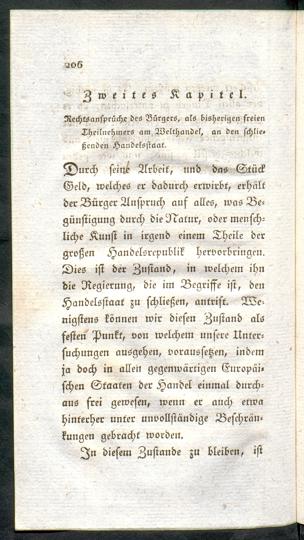 206
Zweites Kapitel.
Rechtsansprüche des Bürgers, als bisherigen freien
Theilnehmers am Welthandel, an den schlie-
ßenden Handelsstaat.
Durch seine Arbeit, und das Stück
Geld, welches er dadurch erwirbt, erhält
der Bürger Anspruch auf alles, was Be-
günstigung durch die Natur, oder mensch-
liche Kunst in irgend einem Theile der
großen Handelsrepublik hervorbringen.
Dies ist der Zustand, in welchem ihn
die Regierung, die im Begriffe ist, den
Handelsstaat zu schließen, antrift. We-
nigstens können wir diesen Zustand als
festen Punkt, von welchem unsere Unter-
suchungen ausgehen, voraussetzen, indem
ja doch in allen gegenwärtigen Europäi-
schen Staaten der Handel einmal durch-
aus frei gewesen, wenn er auch etwa
hinterher unter unvollständige Beschrän-
kungen gebracht worden.
In diesem Zustande zu bleiben, ist